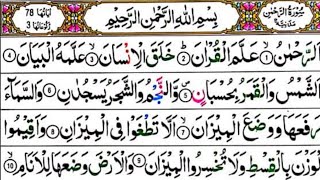 سُوْرَةُ الرَّحْمٰنِ
بِسْمِ اللهِ الرَّحْمٰنِ الرَّحِيْمِ
اٰيَاتُهَا 78
رُكُوْعَاتُهَا 3
اَلرَّحْمٰنُ ۙ﴿1﴾ عَلَّمَ الْقُرْاٰنَ ؕ﴿2﴾ خَلَقَ الْاِنْسَانَ ۙ﴿3﴾ عَلَّمَهُ الْبَيَانَ ﴿4﴾
اَلشَّمْسُ وَالْقَمَرُ بِحُسْبَانٍ ﴿5﴾ وَّالنَّجْمُ وَالشَّجَرُ يَسْجُدٰنِ ﴿6﴾ وَالسَّمَآءَ
رَفَعَهَا وَوَضَعَ الْمِيْزَانَ ۙ﴿7﴾ اَلَّا تَطْغَوْا فِي الْمِيْزَانِ ﴿8﴾ وَاَقِيْمُوا
الْوَزْنَ بِالْقِسْطِ وَلَا تُخْسِرُوا الْمِيْزَانَ ﴿9﴾ وَالْاَرْضَ وَضَعَهَا لِلْاَنَامِ ۙ﴿10﴾